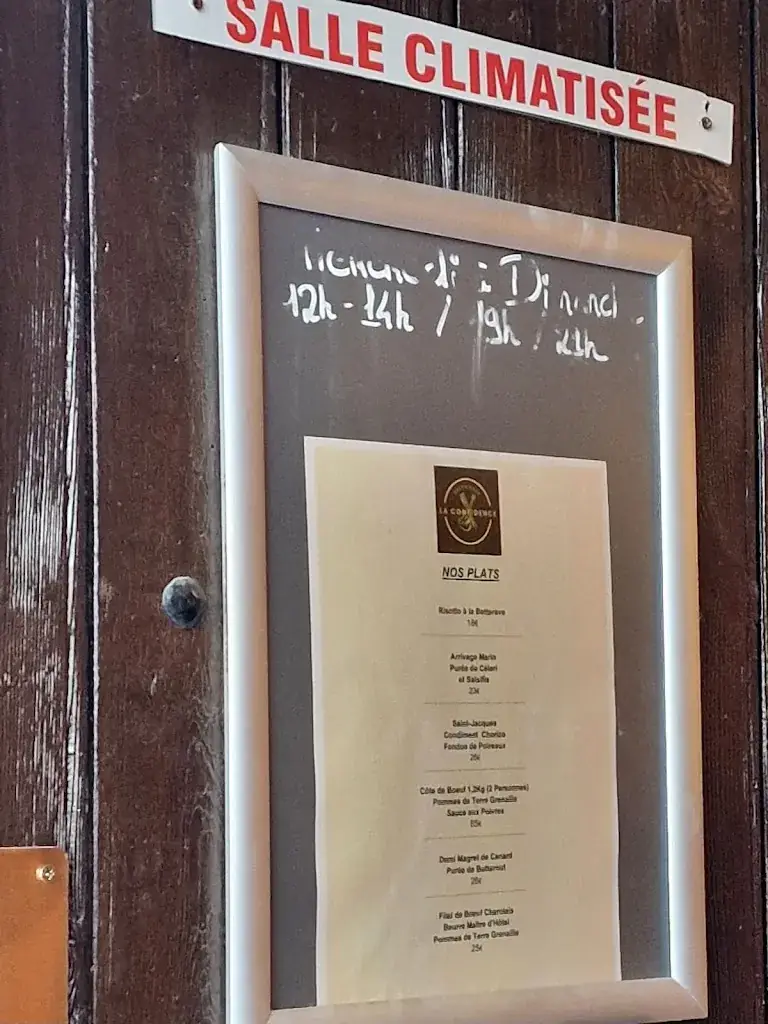 SALLE CLIMATISÉE
12h - 14h / 19h / 21h
LA CONFIDENCE
NOS PLATS
Risotto à la Betterave
Arrivage Marin
Purée de Céleri
et Salsifis
23€
Saint-Jacques
Condiment Chorizo
Fondue de Poireaux
26€
Côte de Boeuf 1,2Kg (2 Personnes)
Pommes de Terre Grenaille
Sauce aux Poivres
Demi Magret de Canard
Purée de Butternut
Filet de Boeuf Charolais
Beurre Maître d'Hôtel
Pommes de Terre Grenaille
25€